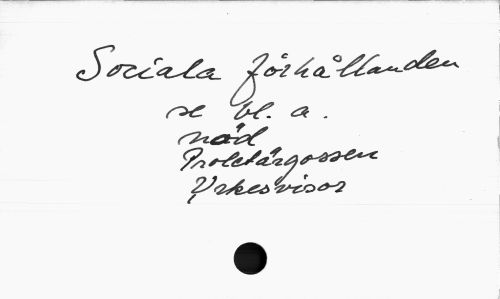 Sociala förhållanden
se bl. a.
nöd
Proletärgossen
Yrkesvisor